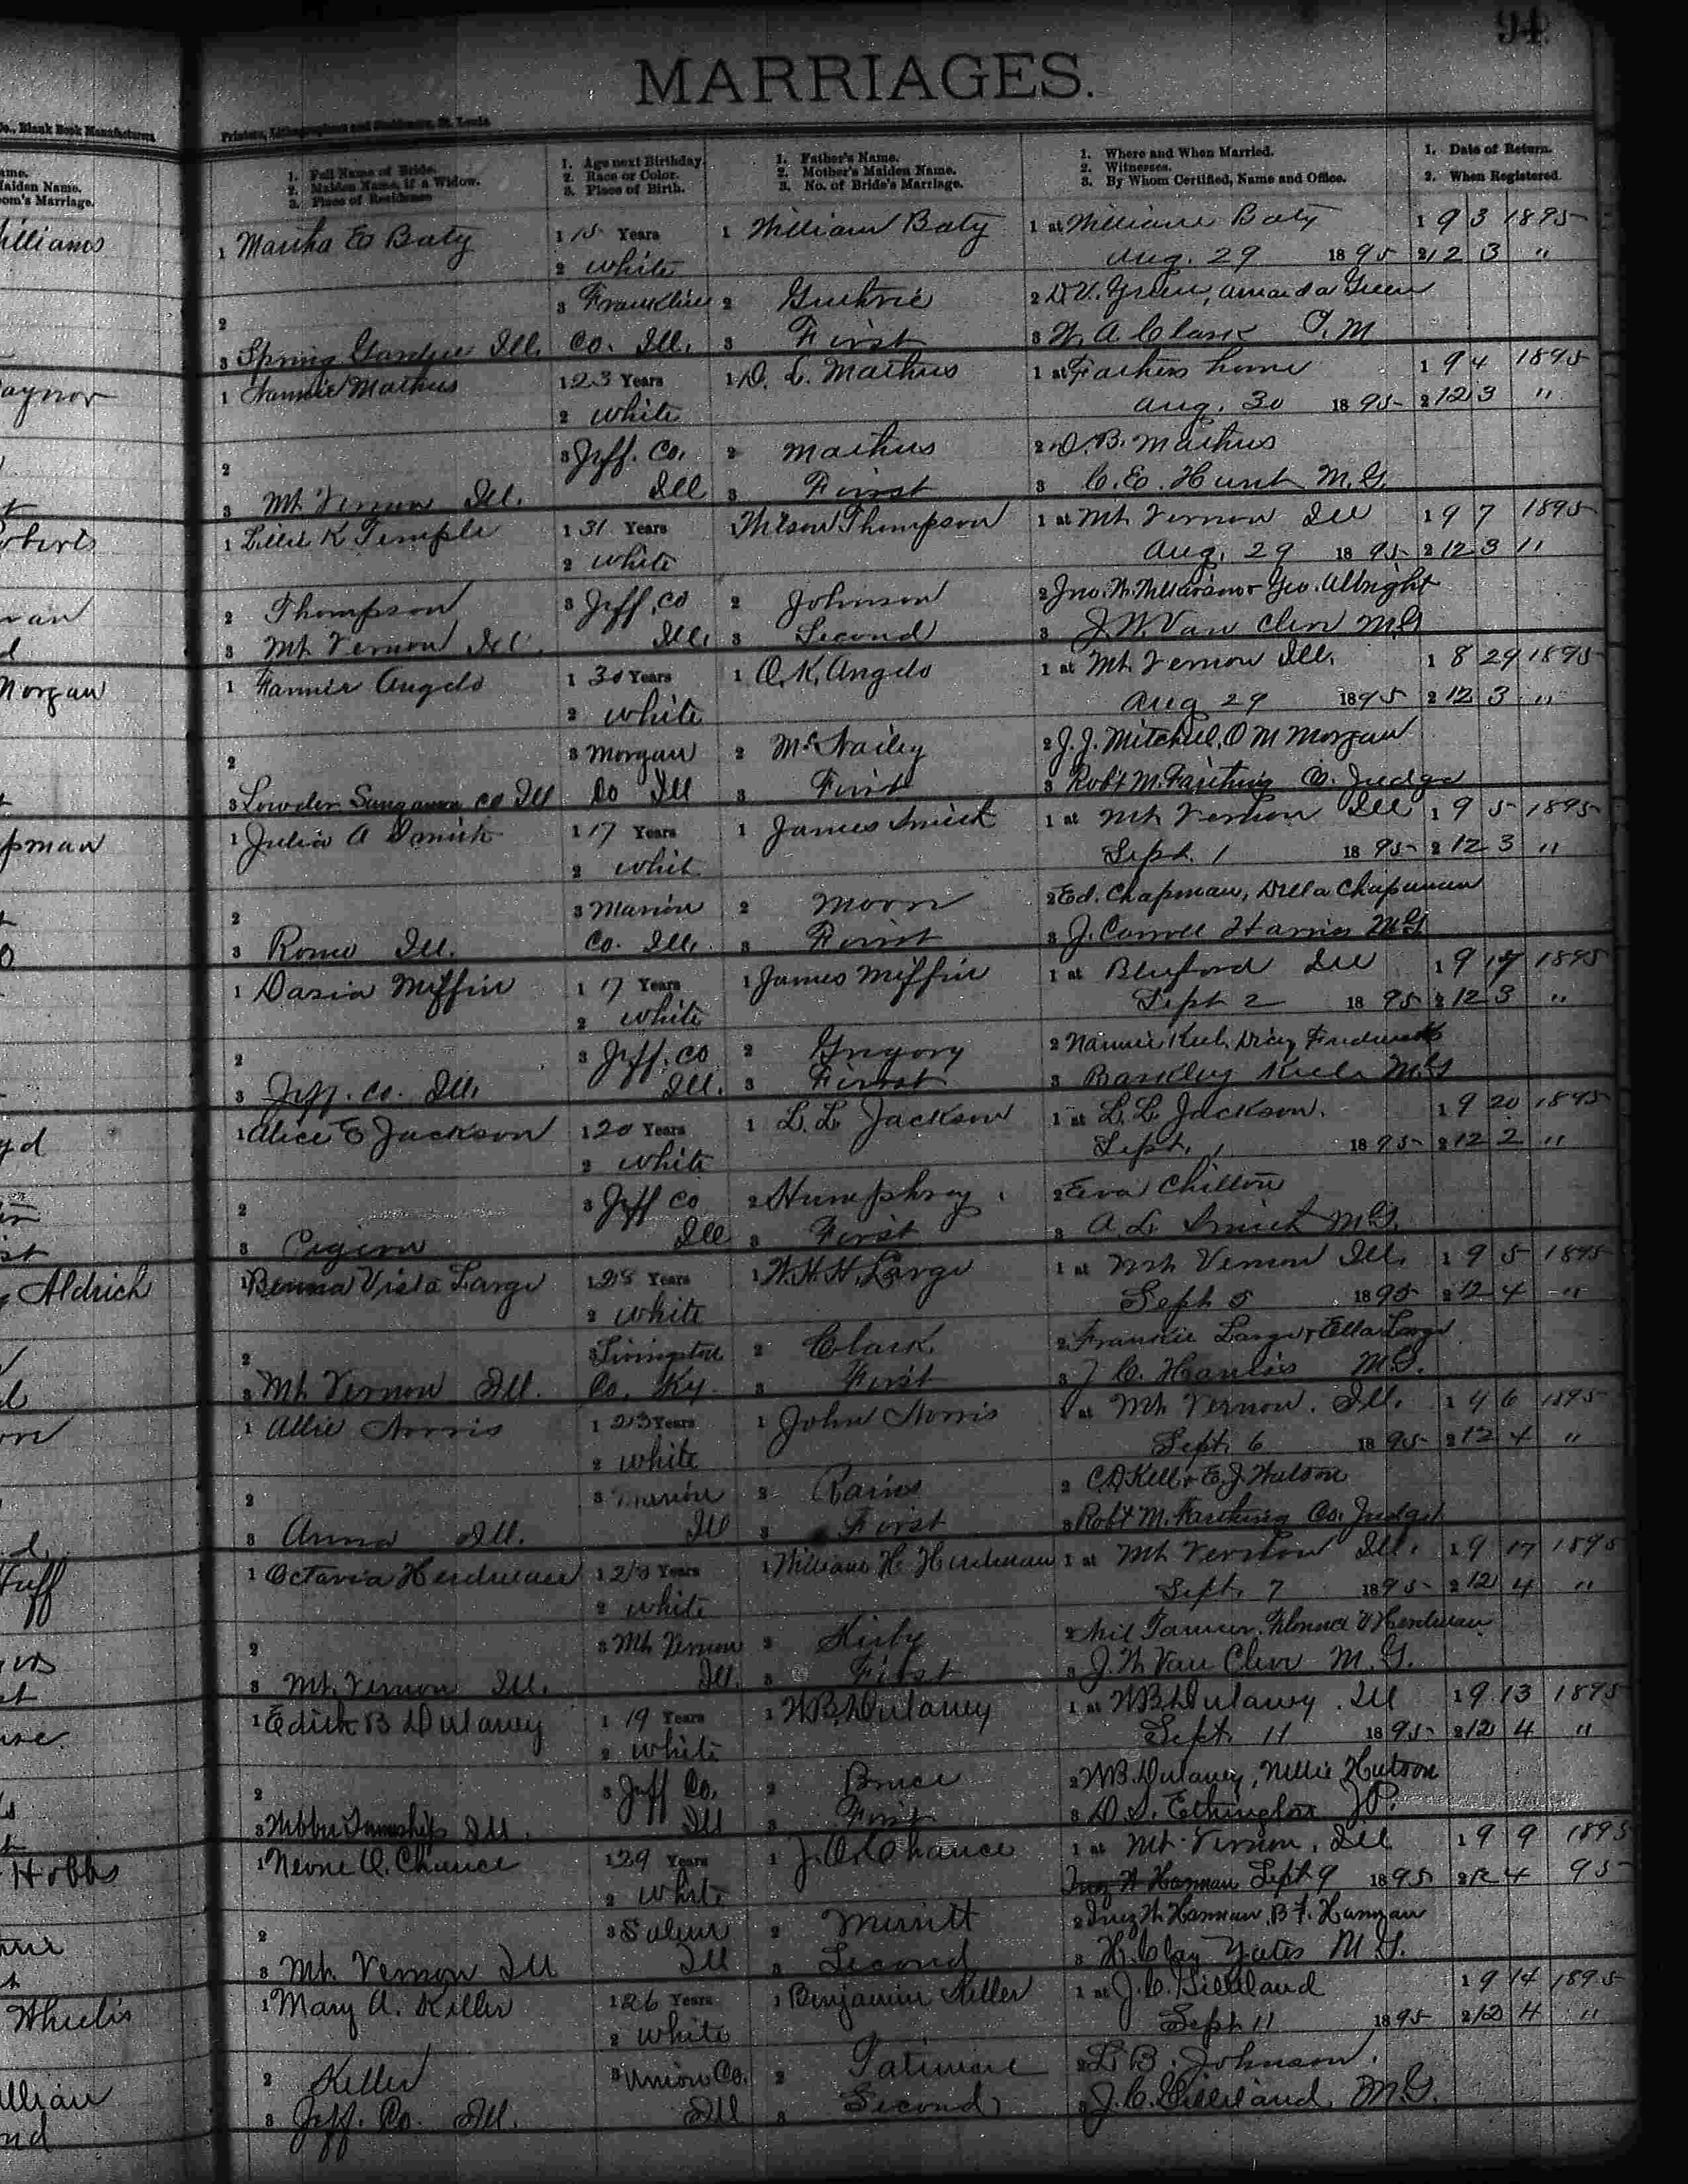 94
MARRIAGES.
Co., Blank Book Manufacturers
Printers, Lithographers and Stationers, St. Louis
1. Full Name of Bride. 2. Maiden Name, if a Widow. 3. Place of Residence
1. Age next Birthday. 2. Race or Color. 3. Place of Birth.
1. Father's Name. 2. Mother's Maiden Name. 3. No. of Bride's Marriage.
1. Where and When Married. 2. Witnesses. 3. By Whom Certified, Name and Office.
1. Date of Return. 2. When Registered.
Williams
1 Martha E Baty 1 18 Years 1 William Baty 1 at William Baty 1 9 3 1895
2 White Aug. 29 1895 2 12 3 "
2 3 Franklin 2 Guthrie 2 D.V. Green, Amanda Green
3 Spring Garden Ill. Co. Ill. 3 First 3 W. A. Clark
1 Fannie Mathus 1 23 Years 1 D. L. Mathus 1 at Fathers home 1 9 4 1895
2 White Aug. 30 1895 2 12 3 "
2 3 Jeff. Co. 2 Mathus 2 D. B. Mathus
3 Mt Vernon Ill. Ill 3 First 3 C. E. Hunt M.G.
1 Lillie K Temple 1 31 Years Wilson Thompson 1 at Mt Vernon Ill 1 9 7 1895
2 White Aug. 29 1895 2 12 3 11
2 Thompson 3 Jeff. Co 2 Johnson 2 Jno. Geo. Albright
3 Mt Vernon Ill. Ill. 3 Second 3 J. W. Van Cleve M.G
Morgan
1 Fannie Angelo 1 30 Years 1 O. K. Angelo 1 at Mt Vernon Ill. 1 8 29 1895
2 White Aug 29 1895 2 12 3 "
2 3 Morgan 2 McNailey 2 J. J. Mitchell, O M Morgan
3 Lowder Sangamon Co Ill Co Ill 3 First 3 Robt M. Farthing Co. Judge
1 Julia A Smith 1 17 Years 1 James Smith 1 at Mt Vernon Ill 1 9 5 1895
2 Whit Sept. 1 1895 2 12 3 "
2 3 Marion 2 Moon 2 Ed. Chapman, Della Chapman
3 Rome Ill. Co. Ill. 3 First 3 J. Carroll Harris M.G
1 Dasia Miffin 1 17 Years 1 James Miffin 1 at Bluford Ill 1 9 1895
2 White Sept 2 1895 2 12 3 "
2 3 Jeff. Co 2 Gregory 2 Nannie Keele, Dicy
3 Jeff. Co. Ill. Ill. 3 First 3 Barkley Keele M.G
1 Alice E Jackson 1 20 Years 1 L. L. Jackson 1 at L. L. Jackson. 1 9 20 1895
2 White Sept. 1 1895 2 12 2 "
2 3 Jeff Co 2 Humphrey 2 Eva Chilton
3 Ill 3 First 3 A. L. Smith M.G.
Aldrich
1 Benna Vista Large 1 28 Years 1 W. H. H. Large 1 at Mt Vernon Ill. 1 9 5 1895
2 White Sept 5 1895 2 12 4 "
2 3 Livingston 2 Clark 2 Frankie Large & Ella Large
3 Mt Vernon Ill. Co. Ky. 3 First 3 M.G.
1 Allie Norris 1 23 Years 1 John Norris 1 at Mt Vernon. Ill. 1 9 6 1895
2 White Sept. 6 1895 2 12 4 "
2 3 Marion 2 Rains 2 C D Kell & E. J. Watson
3 Anna Ill. Ill 3 First 3 Robt M. Farthing Co. Judge
1 Octavia Herdman Years 1 William H. Herdman 1 at Mt Vernon Ill. 1 9 17 1895
2 White Sept. 7 1895 2 12 4 "
2 3 Mt Vernon 2 2 Neil Tanner, Florence V Herdman
3 Mt. Vernon Ill. Ill. 3 First 3 J. W Van Cleve M.G.
1 Edith B Dulaney 1 19 Years 1 W B. Dulaney 1 at W B Dulaney. Ill 1 9 13 1895
2 White Sept. 11 1895 2 12 4 "
2 3 Jeff Co. 2 Bruce 2 W B. Dulaney, Nellie Hutson
3 Webber Township Ill. Ill 3 First 3 D. S. Ethington J.P.
Hobbs
1 Neone O. Chance 1 29 Years 1 J. O. Chance 1 at Mt. Vernon, Ill 1 9 9 1895
2 White Inez W Harman Sept 9 1895 2 12 4 95
2 3 Salem 2 Merritt 2 Inez W. Harman, B F. Harman
3 Mt. Vernon Ill Ill 3 Second 3 H. Clay Yates M.G.
1 Mary A. Keller 1 26 Years 1 Benjamin Keller 1 at J. C. Gilliland 1 9 14 1895
2 White Sept 11 1895 2 12 4 "
2 Keller 3 Union Co. 2 2 L. B. Johnson
3 Jeff. Co. Ill. Ill 3 Second 3 J. C. Gilliland, M.G.